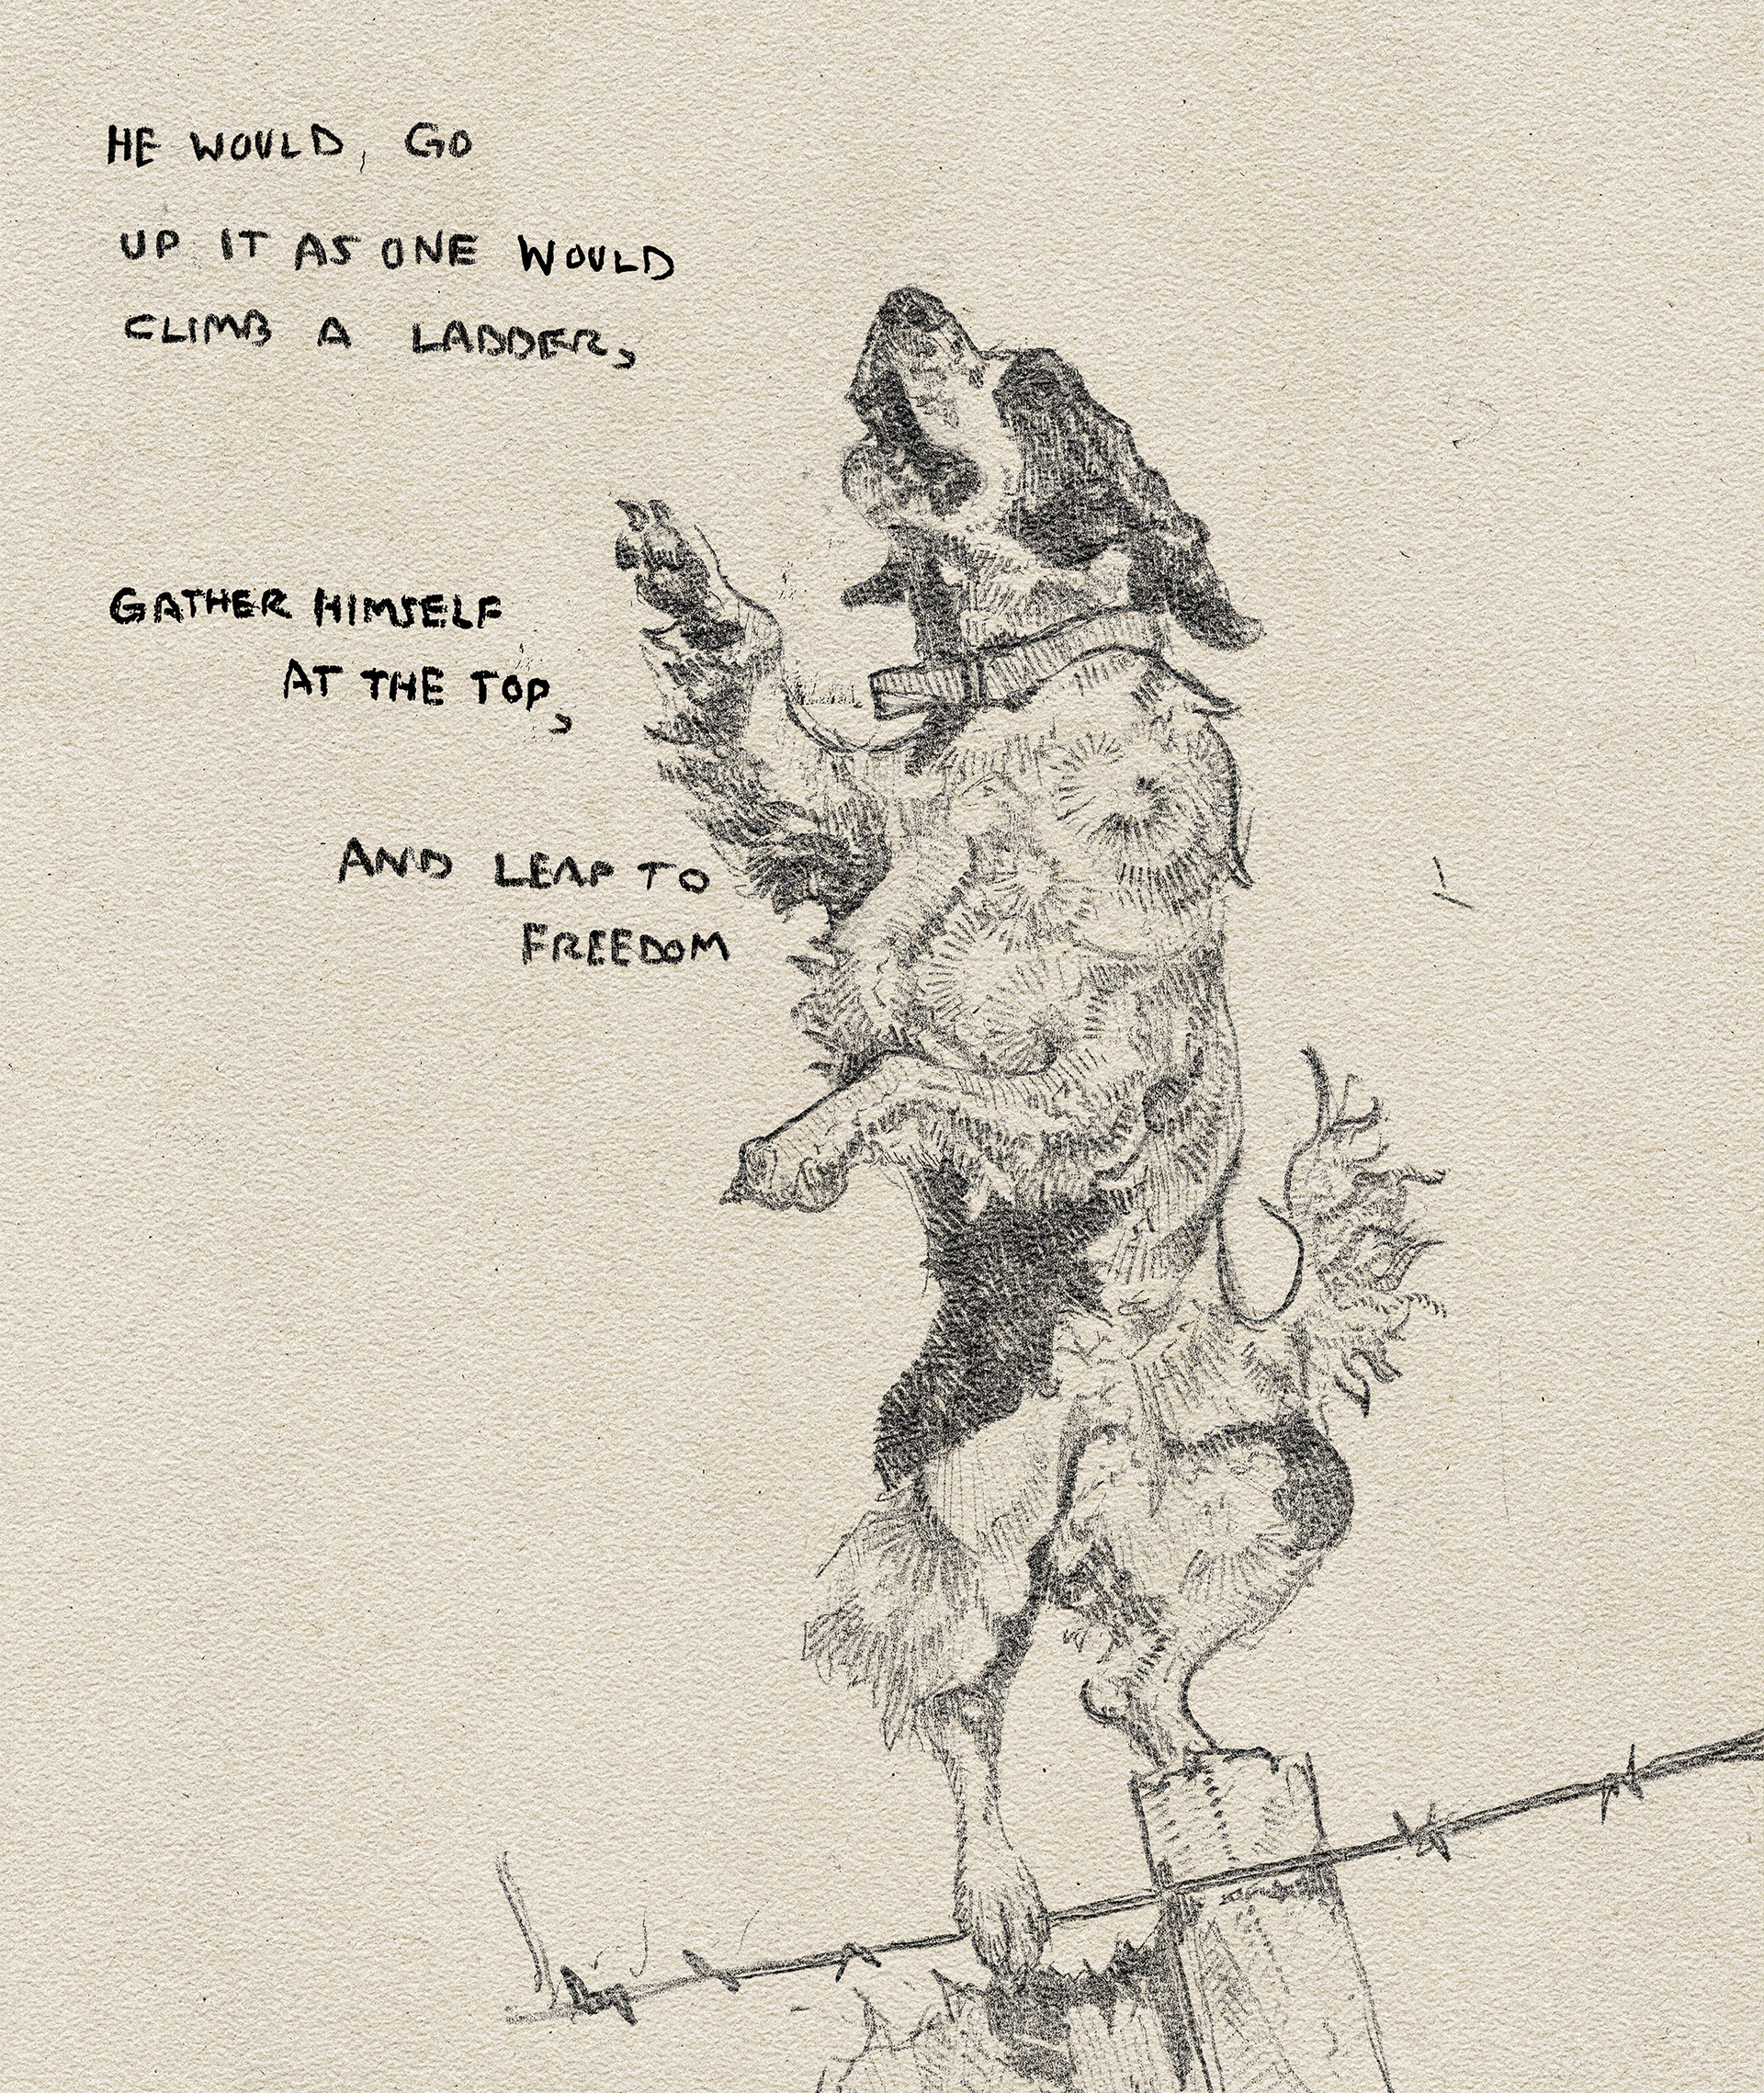 HE WOULD, GO
UP IT AS ONE WOULD
CLIMB A LADDER,
GATHER HIMSELF
AT THE TOP,
AND LEAP TO
FREEDOM